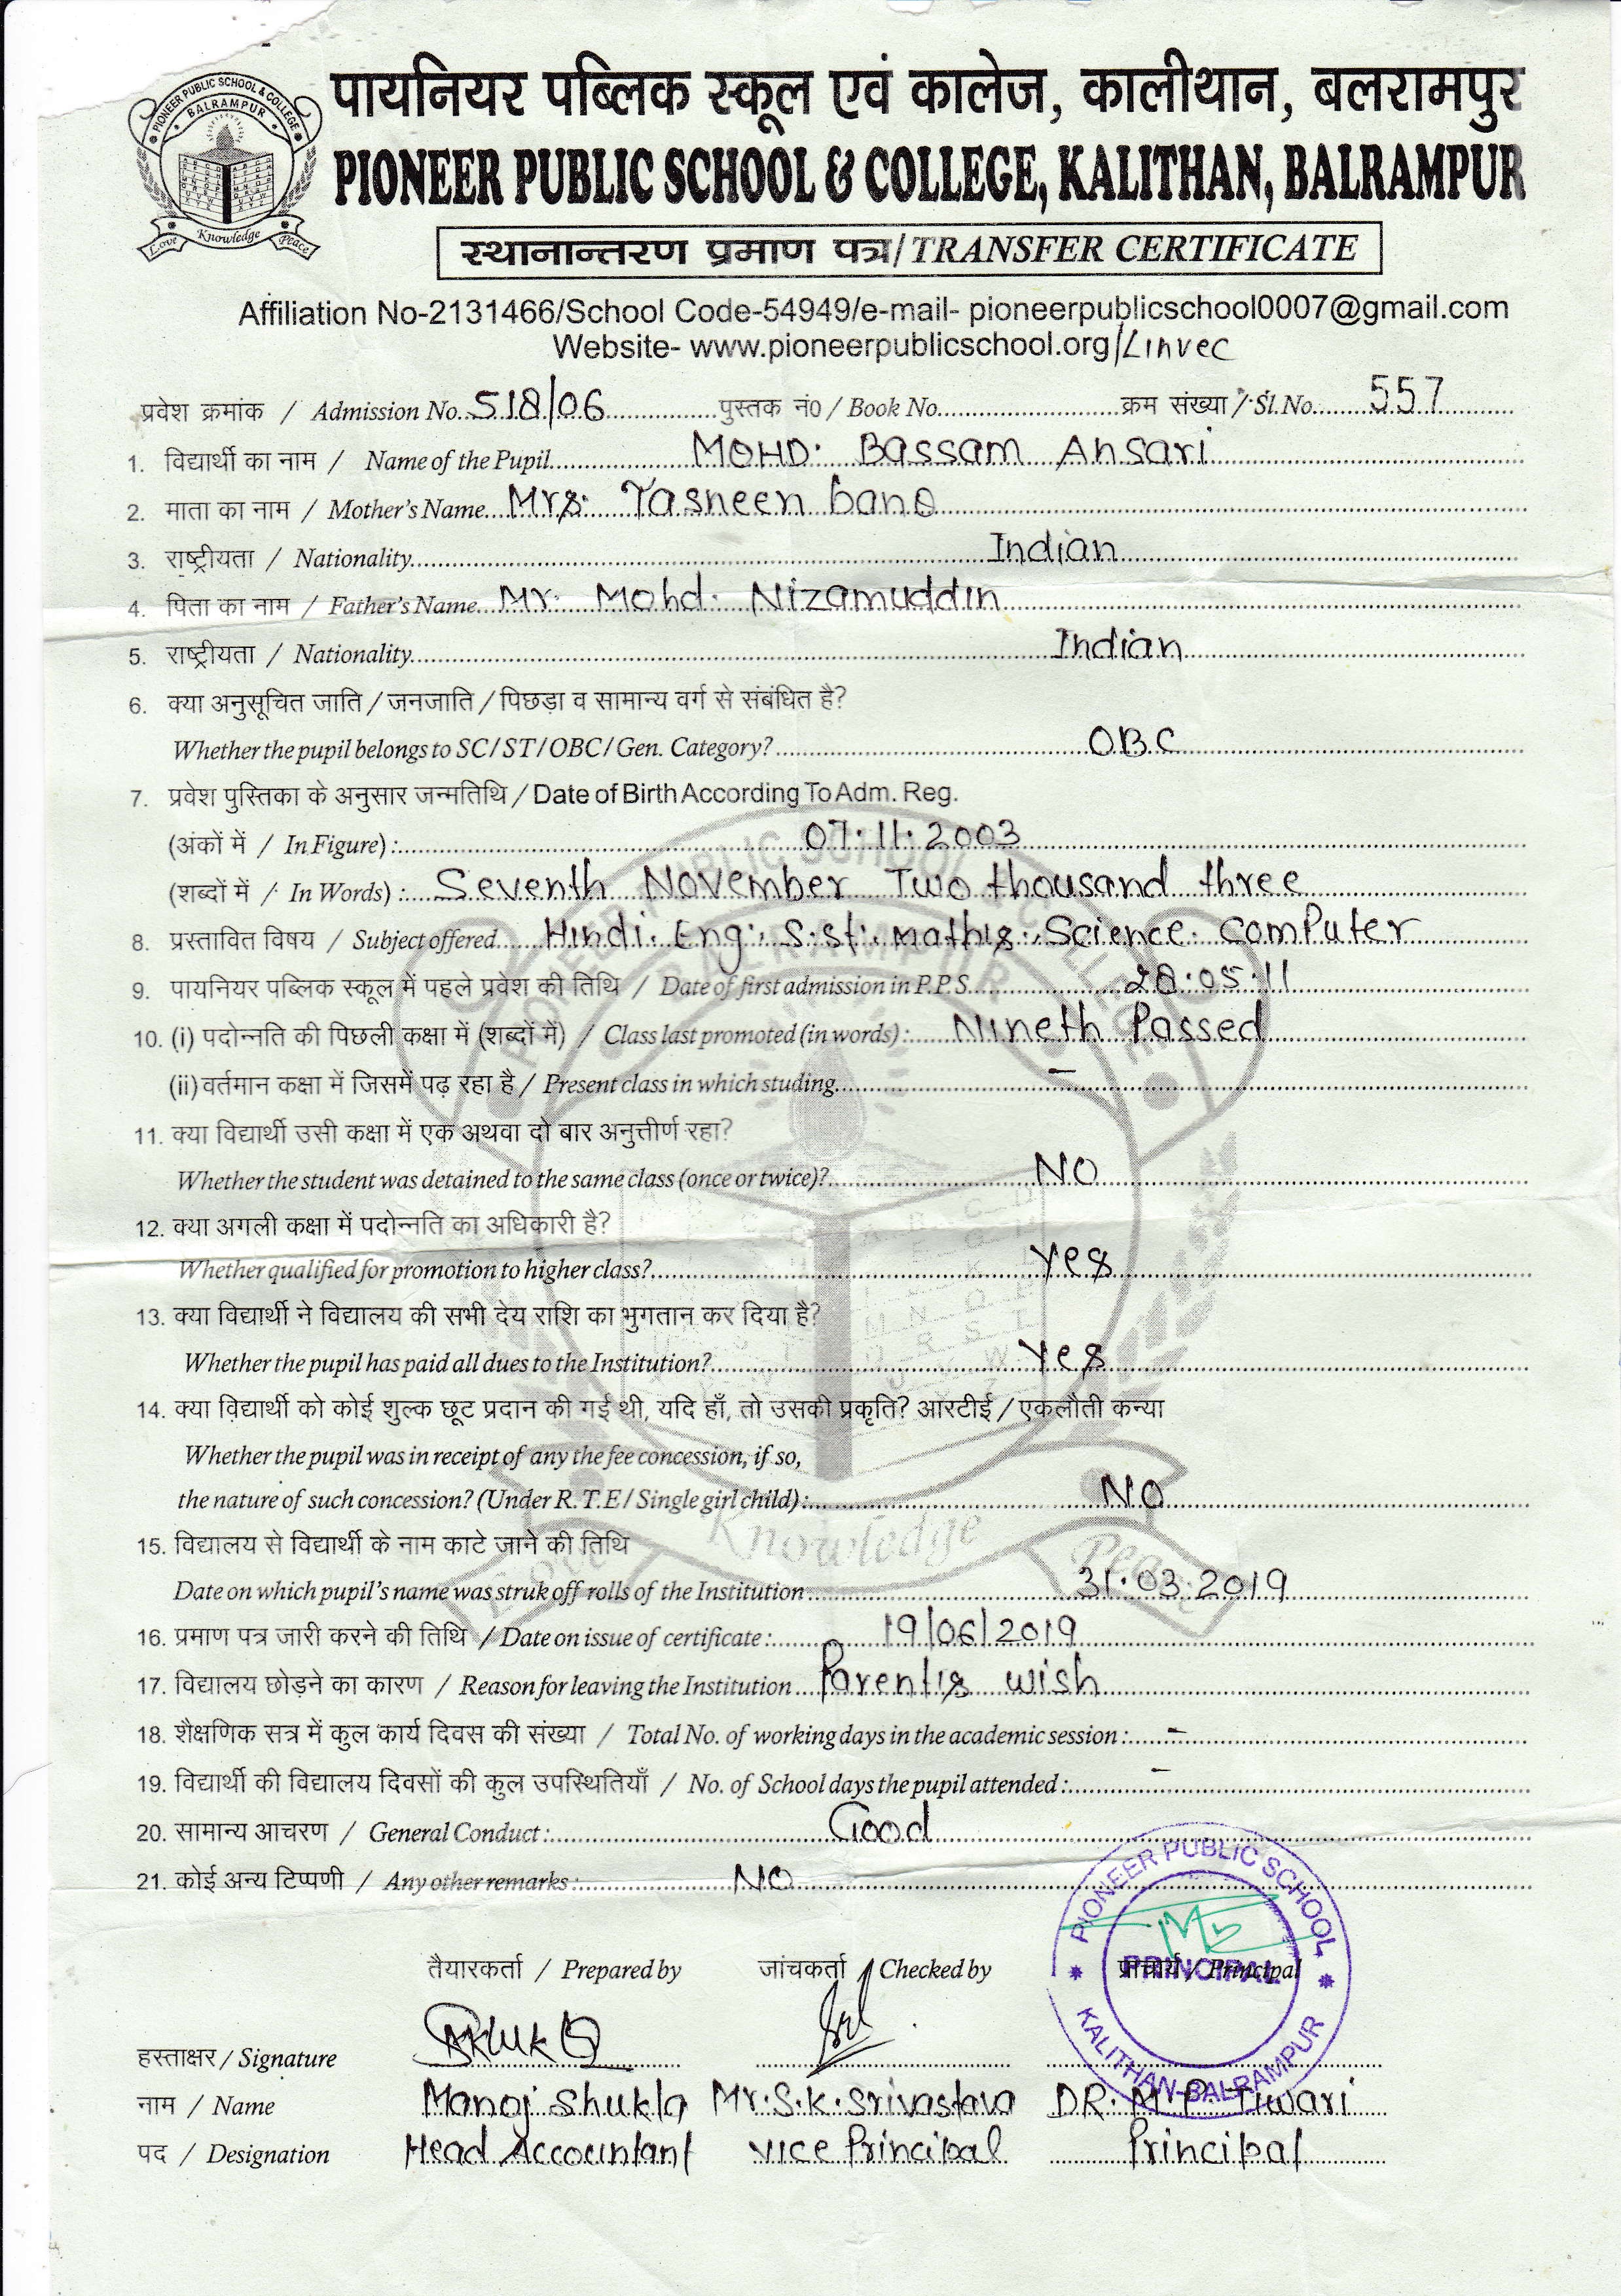 PIONEER PUBLIC SCHOOL & COLLEGE
BALRAMPUR
Love Knowledge Peace
पायनियर पब्लिक स्कूल एवं कालेज, कालीथान, बलरामपुर
PIONEER PUBLIC SCHOOL & COLLEGE, KALITHAN, BALRAMPUR
स्थानान्तरण प्रमाण पत्र/TRANSFER CERTIFICATE
Affiliation No-2131466/School Code-54949/e-mail- pioneerpublicschool0007@gmail.com
Website- www.pioneerpublicschool.org/Linvec
प्रवेश क्रमांक / Admission No. 518/06 पुस्तक नं0 / Book No. क्रम संख्या / Sl. No. 557
1. विद्यार्थी का नाम / Name of the Pupil MOHD. Bassam Ansari
2. माता का नाम / Mother's Name Mrs. Tasneen bano
3. राष्ट्रीयता / Nationality Indian
4. पिता का नाम / Father's Name Mr. Mohd. Nizamuddin
5. राष्ट्रीयता / Nationality Indian
6. क्या अनुसूचित जाति / जनजाति / पिछड़ा व सामान्य वर्ग से संबंधित है?
Whether the pupil belongs to SC/ST/OBC/Gen. Category? OBC
7. प्रवेश पुस्तिका के अनुसार जन्मतिथि / Date of Birth According To Adm. Reg.
(अंकों में / In Figure) : 07.11.2003
(शब्दों में / In Words) : Seventh November Two thousand three
8. प्रस्तावित विषय / Subject offered Hindi, Eng., S.st., maths, Science. Computer
9. पायनियर पब्लिक स्कूल में पहले प्रवेश की तिथि / Date of first admission in P.P.S. 28.05.11
10. (i) पदोन्नति की पिछली कक्षा में (शब्दों में) / Class last promoted (in words) : Nineth Passed
(ii) वर्तमान कक्षा में जिसमें पढ़ रहा है / Present class in which studing -
11. क्या विद्यार्थी उसी कक्षा में एक अथवा दो बार अनुत्तीर्ण रहा?
Whether the student was detained to the same class (once or twice)? NO
12. क्या अगली कक्षा में पदोन्नति का अधिकारी है?
Whether qualified for promotion to higher class? yes
13. क्या विद्यार्थी ने विद्यालय की सभी देय राशि का भुगतान कर दिया है?
Whether the pupil has paid all dues to the Institution? yes
14. क्या विद्यार्थी को कोई शुल्क छूट प्रदान की गई थी, यदि हाँ, तो उसकी प्रकृति? आरटीई / एकलौती कन्या
Whether the pupil was in receipt of any the fee concession, if so,
the nature of such concession? (Under R. T.E / Single girl child) : NO
15. विद्यालय से विद्यार्थी के नाम काटे जाने की तिथि
Date on which pupil's name was struk off rolls of the Institution 31.03.2019
16. प्रमाण पत्र जारी करने की तिथि / Date on issue of certificate : 19/06/2019
17. विद्यालय छोड़ने का कारण / Reason for leaving the Institution Parents wish
18. शैक्षणिक सत्र में कुल कार्य दिवस की संख्या / Total No. of working days in the academic session : -
19. विद्यार्थी की विद्यालय दिवसों की कुल उपस्थितियाँ / No. of School days the pupil attended : -
20. सामान्य आचरण / General Conduct : Good
21. कोई अन्य टिप्पणी / Any other remarks : NO
PIONEER PUBLIC SCHOOL
PRINCIPAL
KALITHAN-BALRAMPUR
तैयारकर्ता / Prepared by जांचकर्ता / Checked by प्राचार्य / Principal
हस्ताक्षर / Signature
नाम / Name Manoj Shukla Mr. S.K. Srivastava DR. M.P. Tiwari
पद / Designation Head Accountant vice Principal Principal